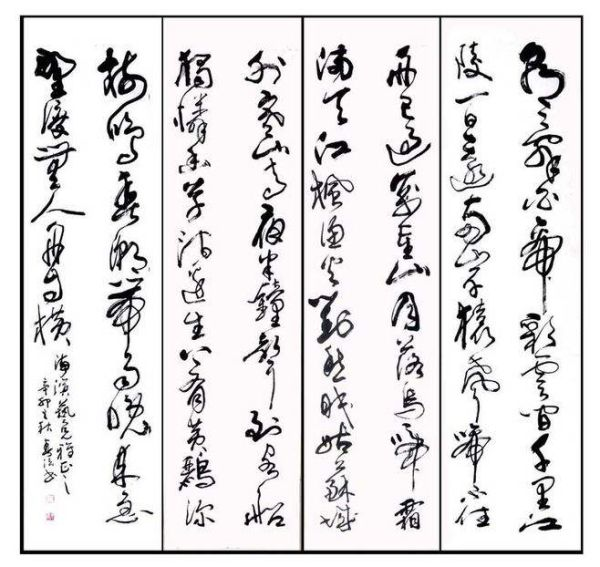 朝辞白帝彩雲間千里江
陵一日還兩岸猿聲啼不住
舟已過萬重山月落烏啼霜
滿天江楓漁火對愁眠姑蘇城
外寒山寺夜半鐘聲到客船
獨憐幽草澗邊生上有黃鸝深
樹鳴春潮帶雨晚來急
野渡無人舟自橫
海濱藝兄雅正之
辛卯之秋